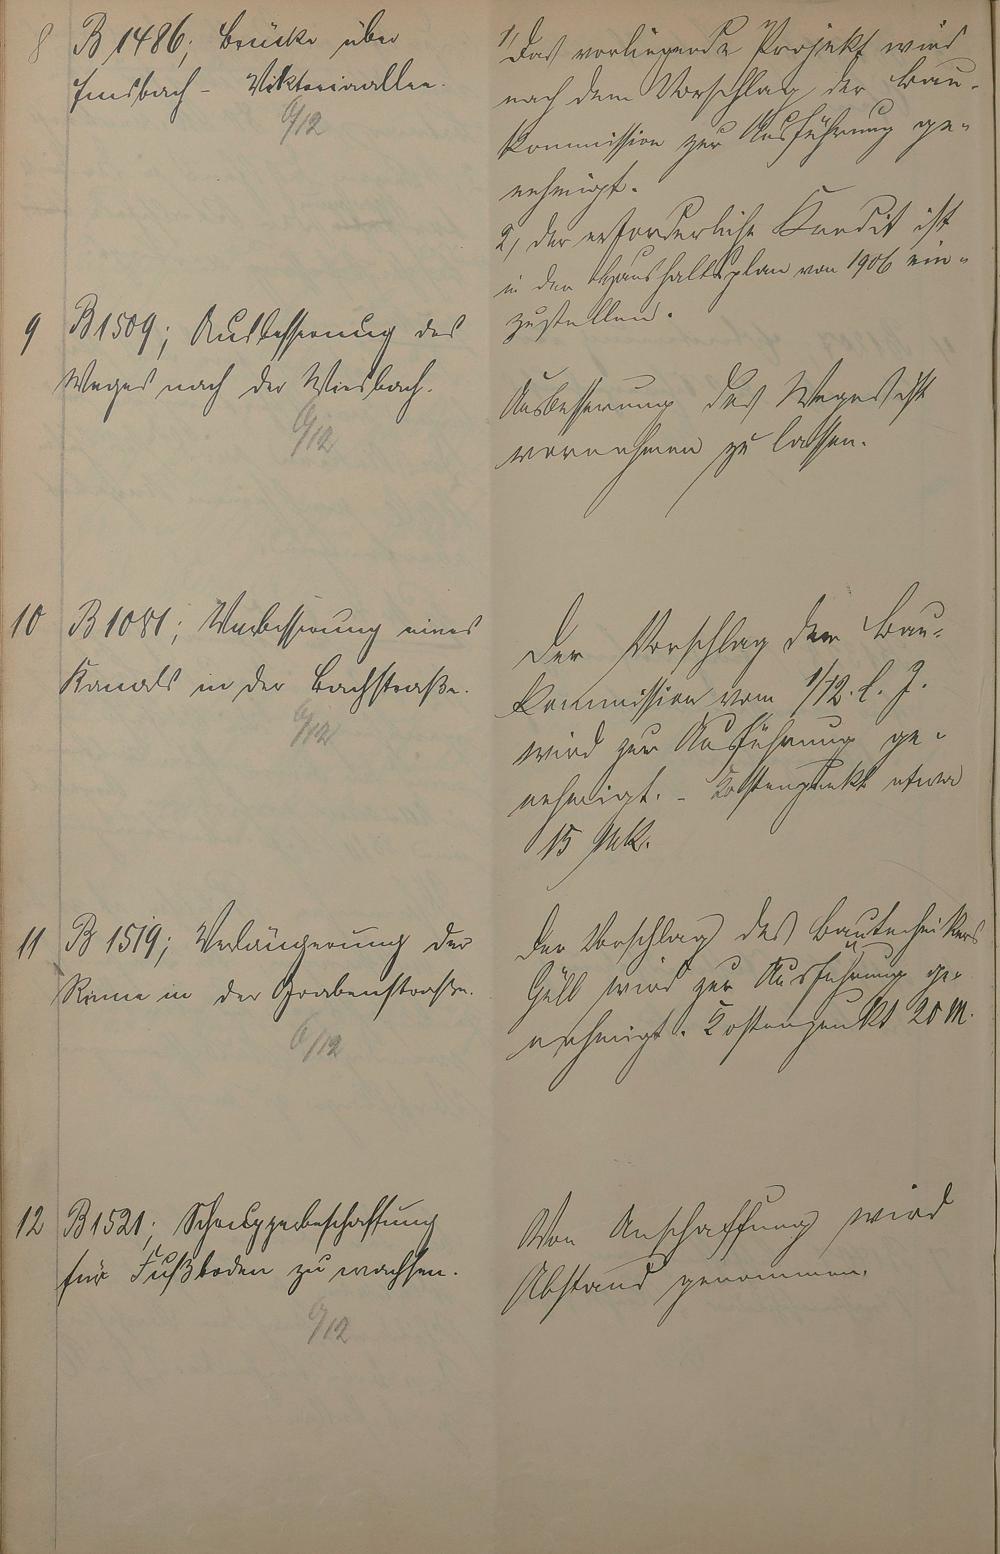 8 B 1486; Brücke über
Emsbach - Viktoriaallee.
6/12
1, Das vorliegende Projekt wird
nach dem Vorschlag der Bau-
kommission zur Ausführung ge-
nehmigt.
2, der erforderliche Kredit ist
in den Haushaltsplan von 1906 ein-
zustellen.
9 B 1509; Ausbesserung des
Weges nach der Wiesbach.
6/12
Ausbesserung des Weges ist
vornehmen zu lassen.
10 B 1081; Verbesserung eines
Kanals in der Bachstraße.
6/12
Der Vorschlag der Bau-
kommission vom 1/12. l. J.
wird zur Ausführung ge-
nehmigt. - Kostenpunkt etwa
15 Mk.
11 B 1519; Verlängerung der
Rinne in der Grabenstrasse.
6/12
Der Vorschlag des Bautechnikers
Güll wird zur Ausführung ge-
nehmigt. Kostenpunkt 20 M.
12 B 1521;
für Fußboden zu wachsen.
6/12
Von Anschaffung wird
Abstand genommen.